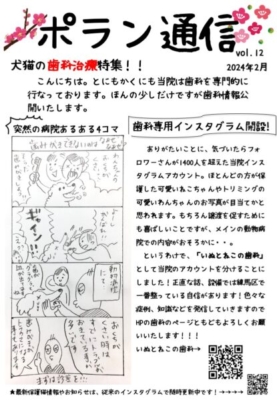 ポラン通信
vol.12
犬猫の歯科治療特集！！
2024年2月
こんにちは。とにもかくにも当院は歯科を専門的に
行なっております。ほんの少しだけですが歯科情報公
開いたします。
突然の病院あるある4コマ
歯科専用インスタグラム開設!
ありがたいことに、気づいたらフォ
ロワーさんが1400人を超えた当院インス
タグラムアカウント。ほとんどの方が保
護した可愛いねこちゃんやトリミングの
可愛いわんちゃんのお写真が目当てかと
思われます。もちろん譲渡を促すために
も喜ばしいことですが、メインの動物病
院での内容がおそろかに・・。
というわけで、「いぬとねこの歯科」
として当院のアカウントを分けることに
しました！正直な話、設備では練馬区で
一番整っている自信があります！色々な
症例、知識などを発信していきますので
HPの歯科のページともどもよろしくお願
いいたします！！！
いぬとねこの歯科→
★最新保護猫情報のお知らせは、従来のインスタグラムで随時更新中です！→→→→